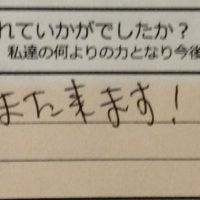 れていかがでしたか？
私達の何よりの力となり今後
また来ます！